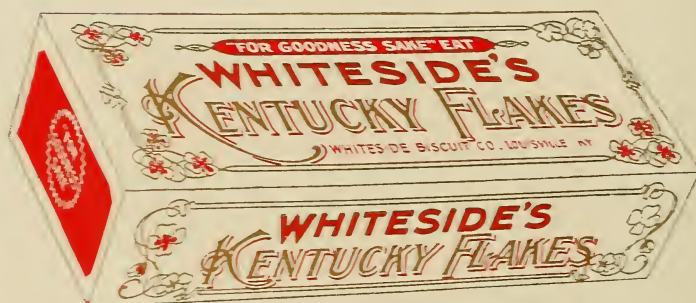 "FOR GOODNESS SAKE" EAT
WHITESIDE'S
KENTUCKY FLAKES
WHITESIDE BISCUIT CO. LOUISVILLE KY
WHITESIDE'S
KENTUCKY FLAKES